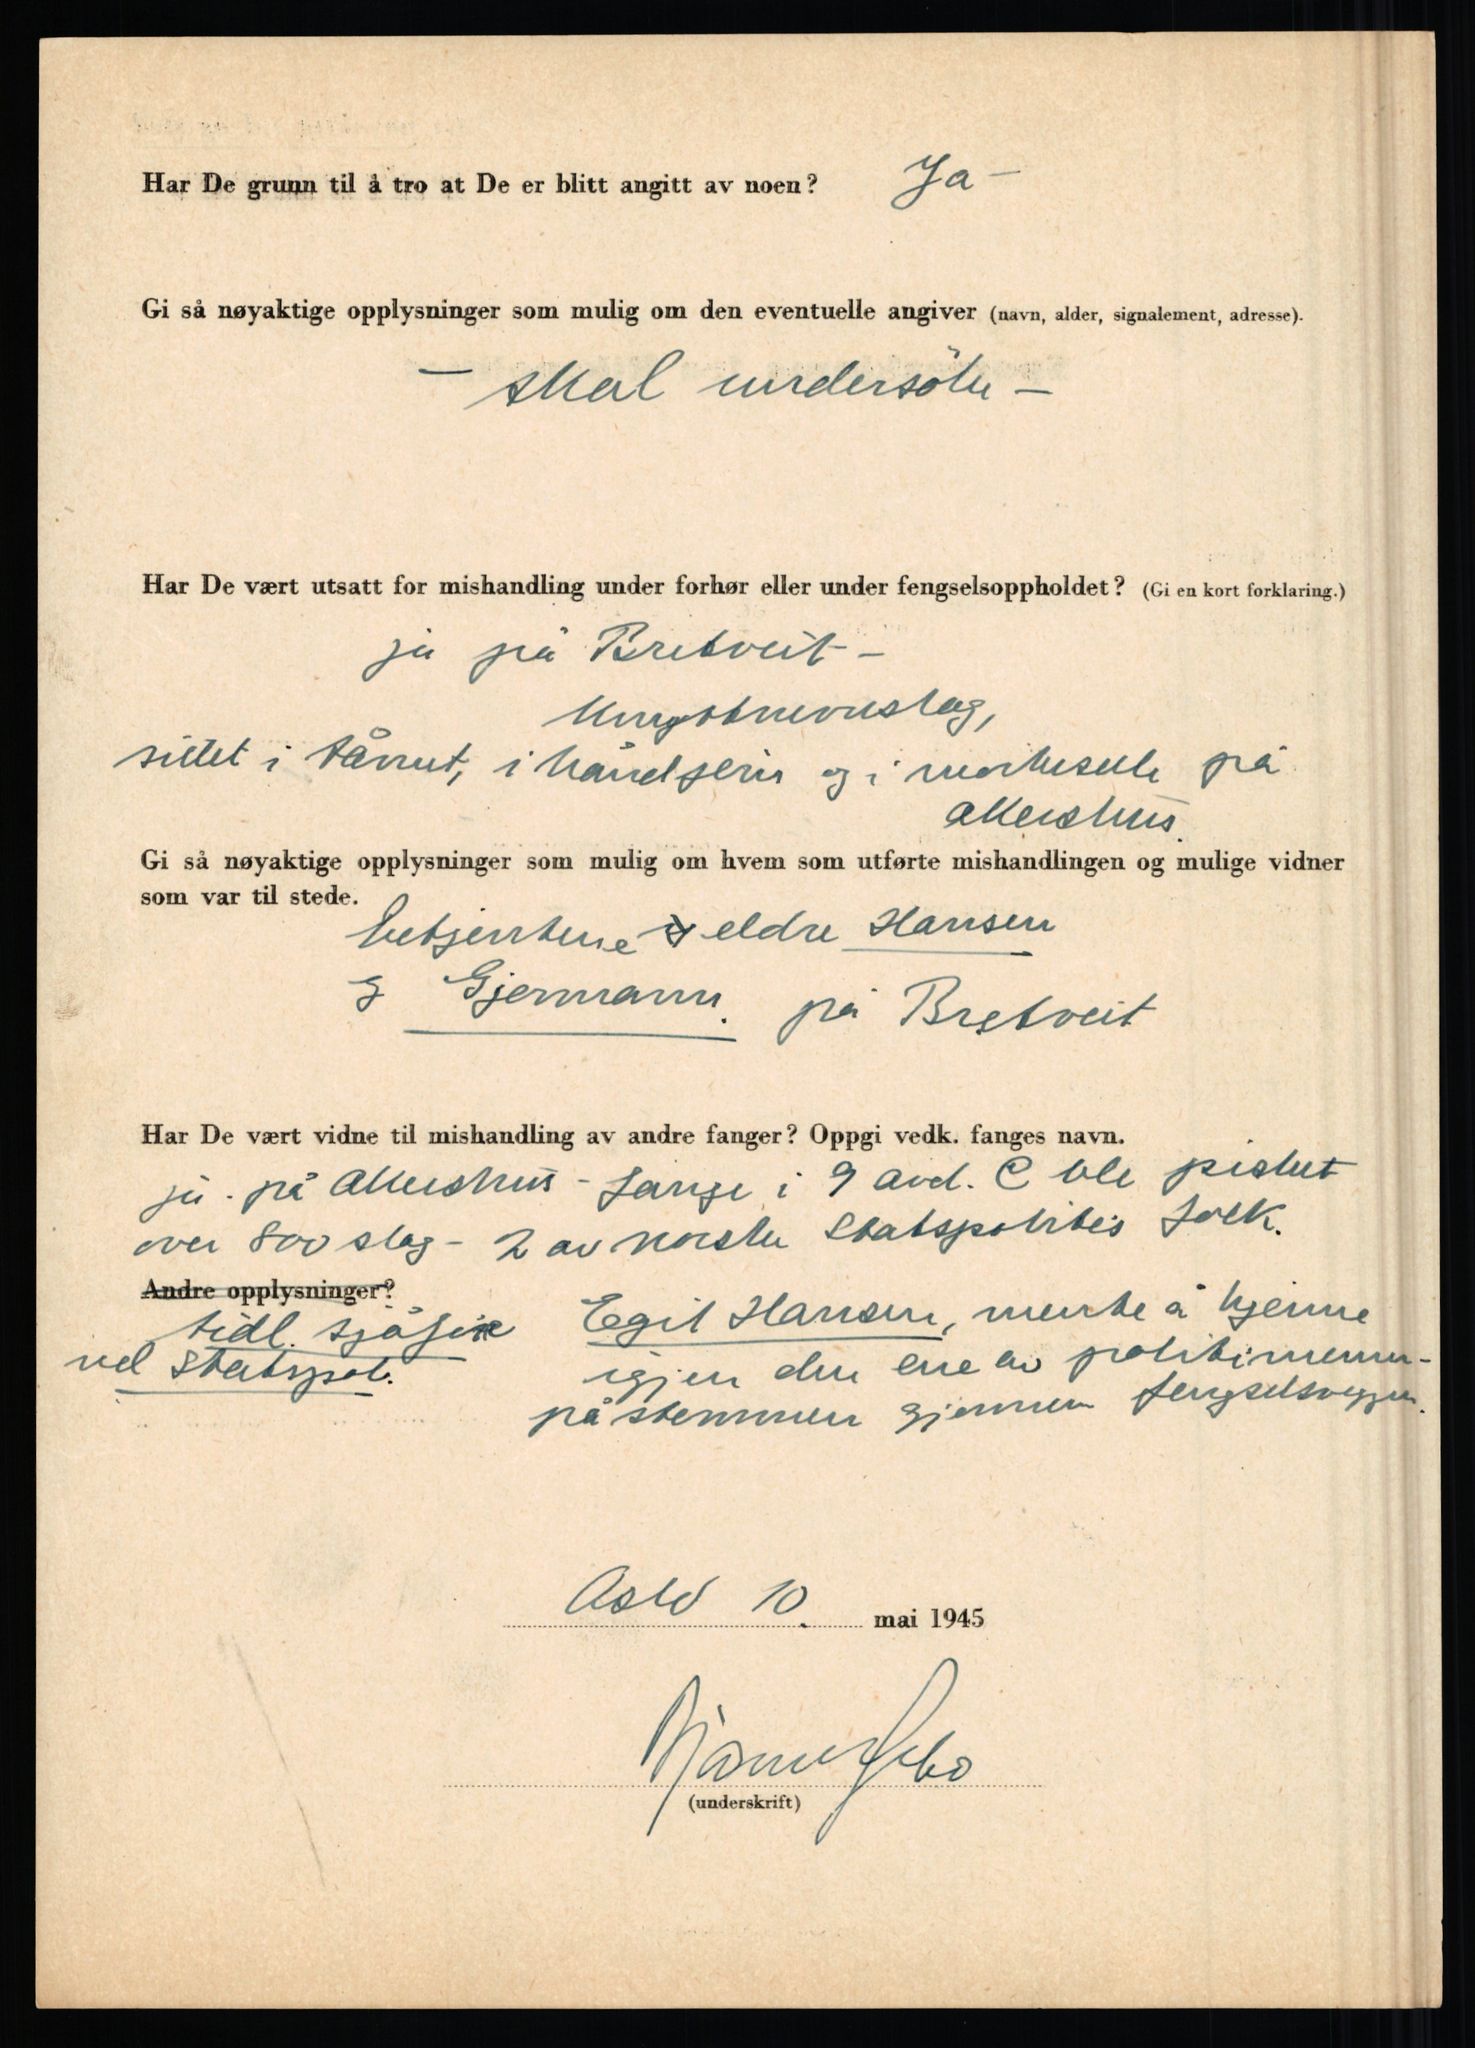 Har De grunn til å tro at De er blitt angitt av noen? Ja –
Gi så nøyaktige opplysninger som mulig om den eventuelle angiver (navn, alder, signalement, adresse).
– skal undersöke –
Har De vært utsatt for mishandling under forhør eller under fengselsoppholdet? (Gi en kort forklaring.)
ja på Bretveit –
sittet i tårnet, i håndjern og i mørkecelle på
Akershus.
Gi så nøyaktige opplysninger som mulig om hvem som utførte mishandlingen og mulige vidner
som var til stede.
betjentene eldre Hansen
& Gjermann. på Bretveit
Har De vært vidne til mishandling av andre fanger? Oppgi vedk. fanges navn.
ja. på Akershus – fange i 9 avd. C ble pisket
over 800 slag – 2 av norske Statspolitis folk.
Andre opplysninger?
Egil Hansen, mente å kjenne
tidl. sjåför
ved Statspol.
igjen den ene av politimenn-
på stemmen gjennem fengselsveggen.
Oslo 10. mai 1945
(underskrift)